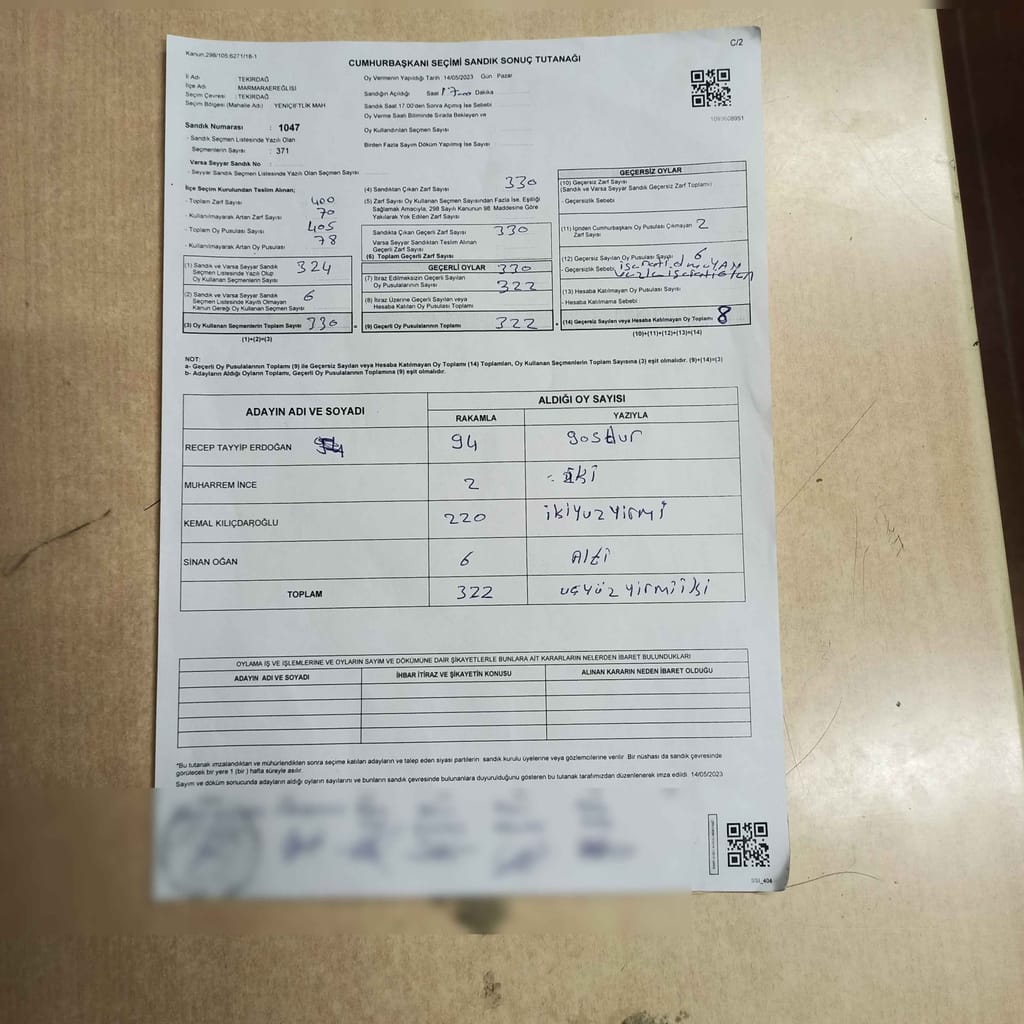 Kanun.298/105:6271/18-1
C/2
CUMHURBAŞKANI SEÇİMİ SANDIK SONUÇ TUTANAĞI
İl Adı : TEKİRDAĞ
İlçe Adı : MARMARAEREĞLİSİ
Seçim Çevresi : TEKİRDAĞ
Seçim Bölgesi (Mahalle Adı) : YENİÇİFTLİK MAH
Oy Vermenin Yapıldığı Tarih : 14/05/2023 Gün : Pazar
Sandığın Açıldığı Saat 17 00 Dakika
Sandık Saat 17:00'den Sonra Açılmış İse Sebebi
Oy Verme Saati Bitiminde Sırada Bekleyen ve
Oy Kullandırılan Seçmen Sayısı
Birden Fazla Sayım Döküm Yapılmış İse Sayısı
1093608951
Sandık Numarası : 1047
- Sandık Seçmen Listesinde Yazılı Olan
Seçmenlerin Sayısı : 371
Varsa Seyyar Sandık No :
- Seyyar Sandık Seçmen Listesinde Yazılı Olan Seçmen Sayısı
İlçe Seçim Kurulundan Teslim Alınan;
- Toplam Zarf Sayısı 400
- Kullanılmayarak Artan Zarf Sayısı 70
- Toplam Oy Pusulası Sayısı 405
- Kullanılmayarak Artan Oy Pusulası 78
(1) Sandık ve Varsa Seyyar Sandık
Seçmen Listesinde Yazılı Olup
Oy Kullanan Seçmenlerin Sayısı 324
(2) Sandık ve Varsa Seyyar Sandık
Seçmen Listesinde Kayıtlı Olmayan
Kanun Gereği Oy Kullanan Seçmen Sayısı 6
(3) Oy Kullanan Seçmenlerin Toplam Sayısı 330
(1)+(2)=(3)
(4) Sandıktan Çıkan Zarf Sayısı 330
(5) Zarf Sayısı Oy Kullanan Seçmen Sayısından Fazla İse, Eşitliği
Sağlamak Amacıyla, 298 Sayılı Kanunun 98. Maddesine Göre
Yakılarak Yok Edilen Zarf Sayısı
Sandıkta Çıkan Geçerli Zarf Sayısı 330
Varsa Seyyar Sandıktan Teslim Alınan
Geçerli Zarf Sayısı
(6) Toplam Geçerli Zarf Sayısı
GEÇERLİ OYLAR 330
(7) İtiraz Edilmeksizin Geçerli Sayılan
Oy Pusulalarının Sayısı 322
(8) İtiraz Üzerine Geçerli Sayılan veya
Hesaba Katılan Oy Pusulası Toplamı
= (9) Geçerli Oy Pusulalarının Toplamı 322
GEÇERSİZ OYLAR
(10) Geçersiz Zarf Sayısı
(Sandık ve Varsa Seyyar Sandık Geçersiz Zarf Toplamı)
- Geçersizlik Sebebi
(11) İçinden Cumhurbaşkanı Oy Pusulası Çıkmayan
Zarf Sayısı 2
(12) Geçersiz Sayılan Oy Pusulası Sayısı 6
- Geçersizlik Sebebi
(13) Hesaba Katılmayan Oy Pusulası Sayısı
- Hesaba Katılmama Sebebi
+ (14) Geçersiz Sayılan veya Hesaba Katılmayan Oy Toplamı 8
(10)+(11)+(12)+(13)=(14)
NOT:
a- Geçerli Oy Pusulalarının Toplamı (9) ile Geçersiz Sayılan veya Hesaba Katılmayan Oy Toplamı (14) Toplamları, Oy Kullanan Seçmenlerin Toplam Sayısına (3) eşit olmalıdır. (9)+(14)=(3)
b- Adayların Aldığı Oyların Toplamı, Geçerli Oy Pusulalarının Toplamına (9) eşit olmalıdır.
ADAYIN ADI VE SOYADI
ALDIĞI OY SAYISI
RAKAMLA YAZIYLA
RECEP TAYYİP ERDOĞAN 94
MUHARREM İNCE 2 iki
KEMAL KILIÇDAROĞLU 220 ikiyuzyirmi
SİNAN OĞAN 6 Alti
TOPLAM 322 uçyüz yirmiiki
OYLAMA İŞ VE İŞLEMLERİNE VE OYLARIN SAYIM VE DÖKÜMÜNE DAİR ŞİKAYETLERLE BUNLARA AİT KARARLARIN NELERDEN İBARET BULUNDUKLARI
ADAYIN ADI VE SOYADI İHBAR İTİRAZ VE ŞİKAYETİN KONUSU ALINAN KARARIN NEDEN İBARET OLDUĞU
*Bu tutanak imzalandıktan ve mühürlendikten sonra seçime katılan adayların ve talep eden siyasi partilerin sandık kurulu üyelerine veya gözlemcilerine verilir. Bir nüshası da sandık çevresinde
görülecek bir yere 1 (bir ) hafta süreyle asılır.
Sayım ve döküm sonucunda adayların aldığı oyların sayılarını ve bunların sandık çevresinde bulunanlara duyurulduğunu gösteren bu tutanak tarafımızdan düzenlenerek imza edildi. 14/05/2023